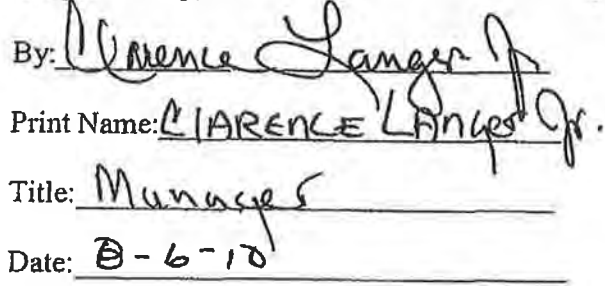 By: Clarence Langer Jr
Print Name: CLARENCE LANGER Jr.
Title: Manager
Date: 8-6-10